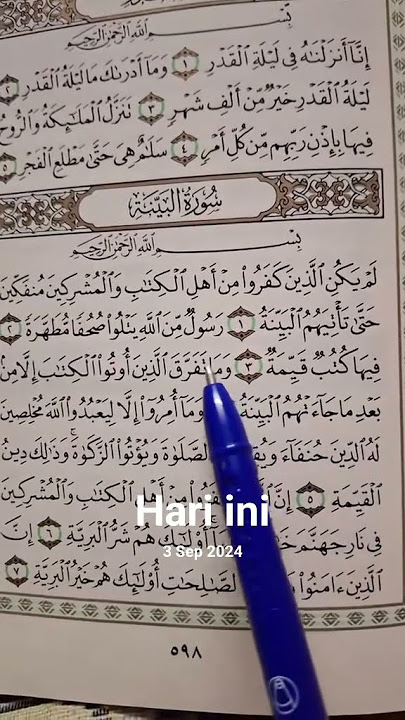 بِسْمِ ٱللَّهِ ٱلرَّحْمَٰنِ ٱلرَّحِيمِ
إِنَّآ أَنزَلْنَٰهُ فِى لَيْلَةِ ٱلْقَدْرِ ١ وَمَآ أَدْرَىٰكَ مَا لَيْلَةُ ٱلْقَدْرِ ٢
لَيْلَةُ ٱلْقَدْرِ خَيْرٌ مِّنْ أَلْفِ شَهْرٍ ٣ تَنَزَّلُ ٱلْمَلَٰٓئِكَةُ وَٱلرُّوحُ
فِيهَا بِإِذْنِ رَبِّهِم مِّن كُلِّ أَمْرٍ ٤ سَلَٰمٌ هِىَ حَتَّىٰ مَطْلَعِ ٱلْفَجْرِ ٥
سُورَةُ ٱلْبَيِّنَةِ
بِسْمِ ٱللَّهِ ٱلرَّحْمَٰنِ ٱلرَّحِيمِ
لَمْ يَكُنِ ٱلَّذِينَ كَفَرُوا۟ مِنْ أَهْلِ ٱلْكِتَٰبِ وَٱلْمُشْرِكِينَ مُنفَكِّينَ
حَتَّىٰ تَأْتِيَهُمُ ٱلْبَيِّنَةُ ١ رَسُولٌ مِّنَ ٱللَّهِ يَتْلُوا۟ صُحُفًا مُّطَهَّرَةً ٢
فِيهَا كُتُبٌ قَيِّمَةٌ ٣ وَمَا تَفَرَّقَ ٱلَّذِينَ أُوتُوا۟ ٱلْكِتَٰبَ إِلَّا مِنۢ
بَعْدِ مَا جَآءَتْهُمُ ٱلْبَيِّنَةُ وَمَآ أُمِرُوٓا۟ إِلَّا لِيَعْبُدُوا۟ ٱللَّهَ مُخْلِصِينَ
لَهُ ٱلدِّينَ حُنَفَآءَ ٱلصَّلَوٰةَ وَيُؤْتُوا۟ ٱلزَّكَوٰةَ وَذَٰلِكَ دِينُ
ٱلْقَيِّمَةِ ٥ إِنَّ مِنْ أَهْلِ ٱلْكِتَٰبِ وَٱلْمُشْرِكِينَ
Hari ini
فِى نَارِ جَهَنَّمَ أُو۟لَٰٓئِكَ هُمْ شَرُّ ٱلْبَرِيَّةِ ٦ إِنَّ
3 Sep 2024
ٱلَّذِينَ ءَامَنُوا۟ ٱلصَّٰلِحَٰتِ أُو۟لَٰٓئِكَ هُمْ خَيْرُ ٱلْبَرِيَّةِ ٧
٥٩٨